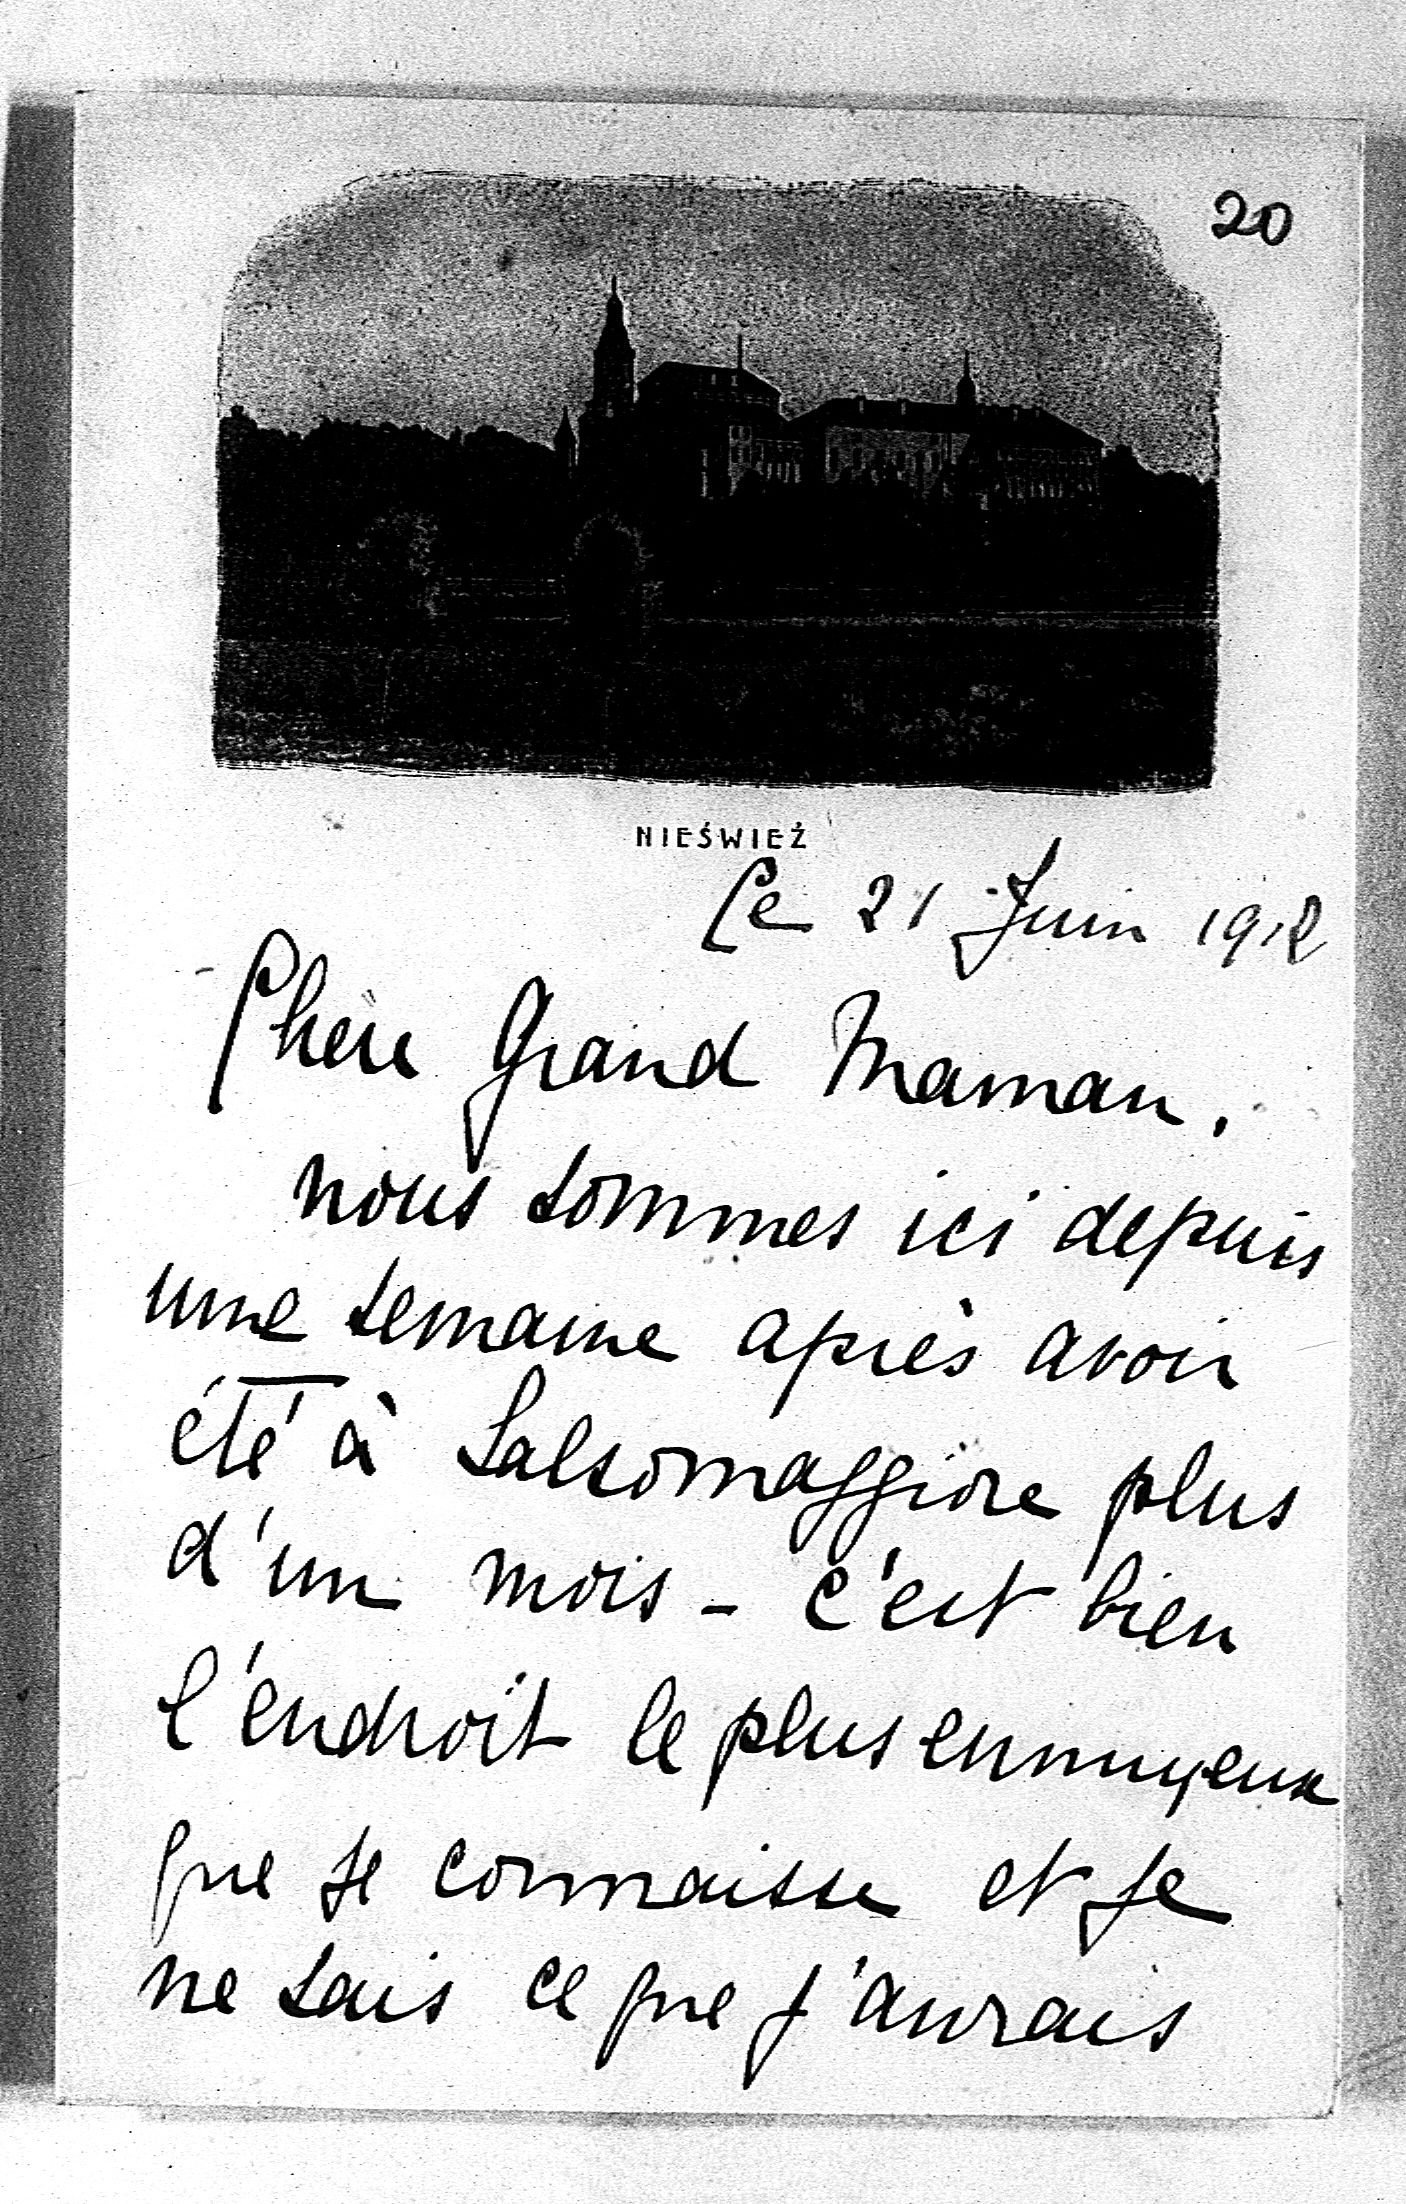 20
NIEŚWIEŻ
Ce 21 Juin 1912
Chère Grand Maman,
nous sommes ici depuis
une semaine après avoir
été à Salsomaggiore plus
d'un mois - c'est bien
l'endroit le plus ennuyeux
que je connaisse et je
ne sais ce que j'aurais